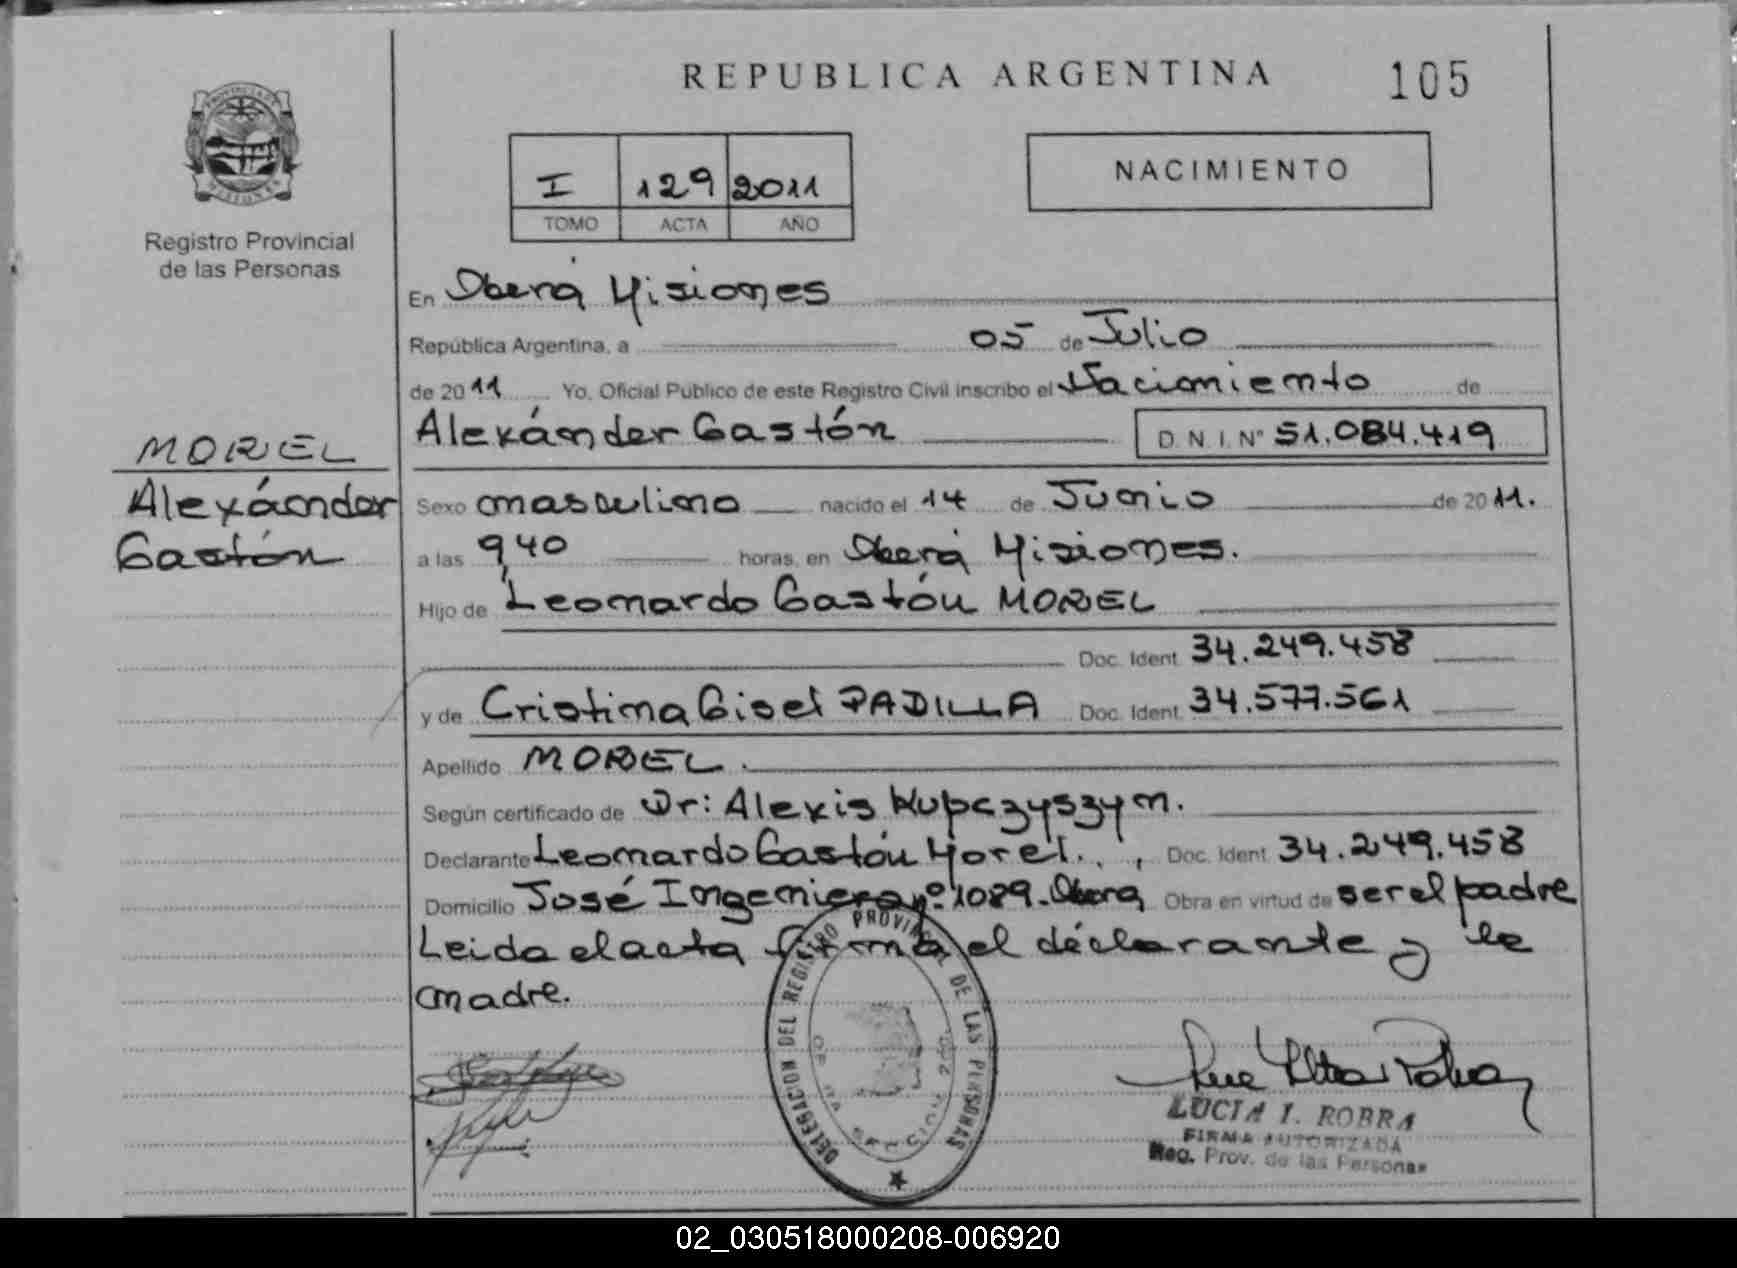 REPUBLICA ARGENTINA
105
PROVINCIA DE
MISIONES
Registro Provincial
de las Personas
I 129 2011
TOMO ACTA AÑO
NACIMIENTO
En Oberá Misiones
República Argentina, a 05 de Julio
de 2011 Yo, Oficial Público de este Registro Civil inscribo el Nacimiento de
Alexánder Gastón D. N. I. N° 51.084.419
MOREL
Alexánder
Gastón
Sexo masculino nacido el 14 de Junio de 2011.
a las 9,40 horas, en Oberá Misiones.
Hijo de Leonardo Gastón MOREL
Doc. Ident. 34.249.458
y de Cristina Gisel PADILLA Doc. Ident. 34.577.561
Apellido MOREL.
Según certificado de Dr: Alexis Kupczyszyn.
Declarante Leonardo Gastón Morel., Doc. Ident. 34.249.458
Domicilio José Ingeniero nº 1089. Oberá Obra en virtud de ser el padre
Leida el acta firma el déclarante y la
madre.
DELEGACION DEL REGISTRO PROVINCIAL DE LAS PERSONAS
LUCIA I. ROBRA
FIRMA AUTORIZADA
Reg. Prov. de las Personas
02_030518000208-006920